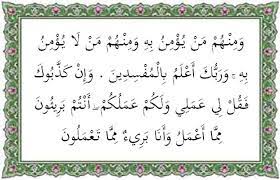 وَمِنْهُمْ مَنْ يُؤْمِنُ بِهِ وَمِنْهُمْ مَنْ لَا يُؤْمِنُ
بِهِ ۚ وَرَبُّكَ أَعْلَمُ بِالْمُفْسِدِينَ ۞ وَإِنْ كَذَّبُوكَ
فَقُلْ لِي عَمَلِي وَلَكُمْ عَمَلُكُمْ ۖ أَنْتُمْ بَرِيئُونَ
مِمَّا أَعْمَلُ وَأَنَا بَرِيءٌ مِمَّا تَعْمَلُونَ